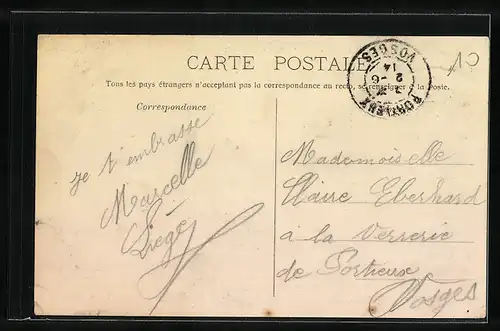 CARTE POSTALE
Tous les pays étrangers n'acceptant pas la correspondance au recto, se renseigner à la Poste.
Correspondance
je t'embrasse
Marcelle
Liégé
Mademoiselle
Claire Eberhard
à la Verrerie
de Portieux
Vosges
PORTIEUX
VOSGES
2 -6
14
10